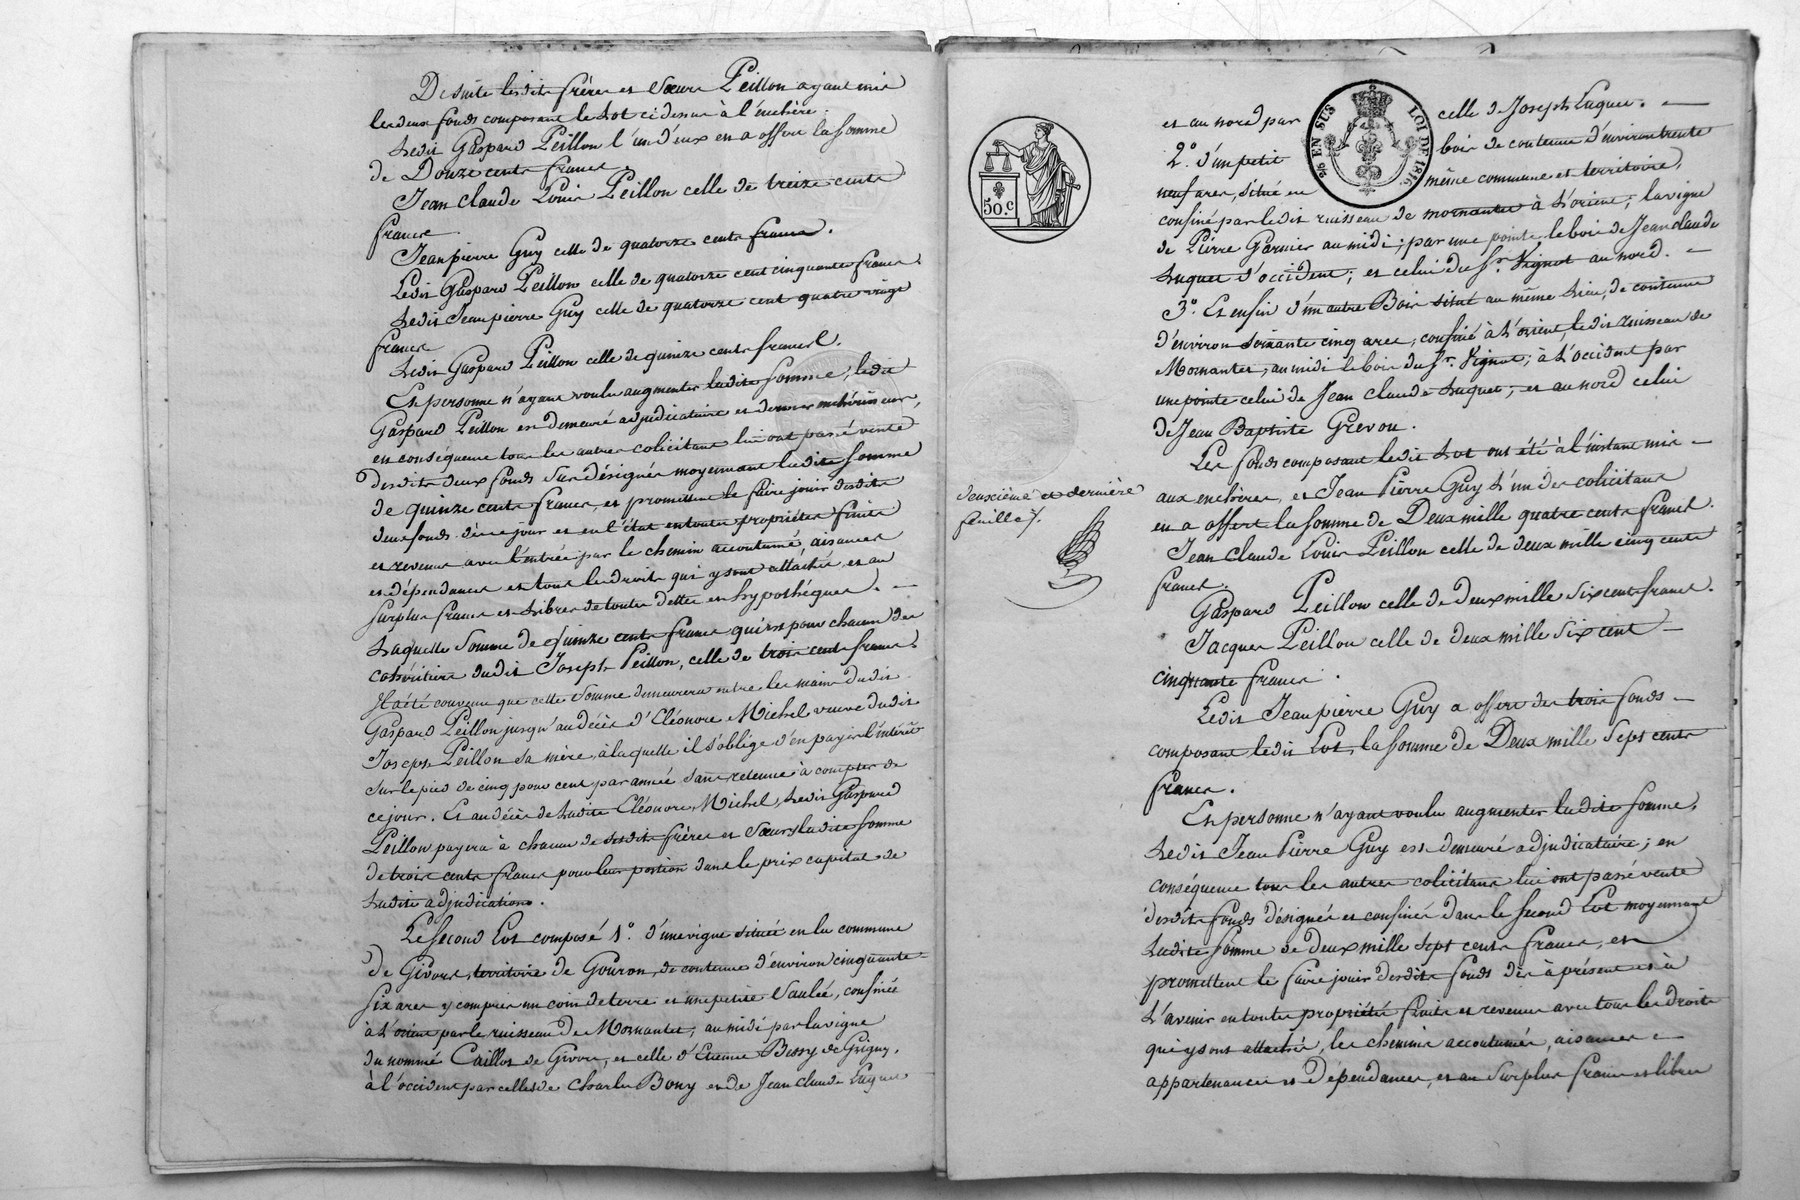 De suite lesdits frères et Sœurs Peillon ayant mis
les deux fonds composant le Lot ci dessus à l'enchère.
Ledit Gaspard Peillon l'un d'eux en a offert la somme
de Douze cents francs
Jean Claude Louis Peillon celle de treize cents
francs
Jean pierre Guy celle de quatorze cents francs.
Ledit Gaspard Peillon celle de quatorze cent cinquante francs.
Ledit Jean pierre Guy celle de quatorze cent quatre vingt
francs
Ledit Gaspard Peillon celle de quinze cents francs.
Et personne n'ayant voulu augmenter ladite somme, ledit
Gaspard Peillon est demeuré adjudicataire et dernier enchérisseur,
en conséquence tous les autres colicitans lui ont passé vente
desdits deux fonds Sus désignés moyennant ladite somme
de quinze cents francs, et promettent le faire jouir desdits
deux fonds dès ce jour et en l'état en toutes propriétés fruits
et revenus avec l'entrée par le chemin accoutumé, aisances
et dépendances et tous les droits qui y sont attachés, et au
surplus francs et Libres de toutes dettes et hypothèques. —
Laquelle Somme de Quinze cents francs qui est pour chacun des
cohéritiers dudit Joseph Peillon, celle de trois cents francs.
Il a été convenu que cette Somme demeurera entre les mains dudit
Gaspard Peillon jusqu'au décès d'Eléonore Michel veuve dudit
Joseph Peillon Sa mère, à laquelle il s'oblige d'en payer l'intérêt
sur le pied de cinq pour cent par année Sans retenue à compter de
ce jour. Et au décès de Ladite Eléonore Michel, Ledit Gaspard
Peillon payera à chacun de sesdits frères et Sœurs ladite somme
de trois cents francs pour leur portion dans le prix capital de
Ladite adjudication.
Le second Lot composé 1°. d'une vigne située en la commune
de Givors, territoire de Gouron, de contenue d'environ cinquante
six ares y compris un coin de terre et une petite Saulée, confinée
à L'orient par le ruisseau de Mornantet, au midi par la vigne
du nommé Caillot de Givors, et celle d'Etienne Bossy de Grigny,
à l'occident par celles de Charles Bony et de Jean Claude Luquet
et au nord par celle de Joseph Luquet. —
2°. d'un petit bois de contenue d'environ trente
neuf ares, situé en même commune et territoire,
confiné par ledit ruisseau de mornantet à L'orient; la vigne
de Pierre Garnier au midi; par une pointe le bois de Jean claude
Luquet d'occident; et celui du Sr. Vignat au nord. —
3°. Et enfin d'un autre Bois situé au même Lieu, de contenue
d'environ soixante cinq ares, confiné à L'orient, ledit Ruisseau de
Mornantet, au midi le bois du Sr. Vignat; à L'occident par
une pointe celui de Jean Claude Luquet; et au nord celui
de Jean Baptiste Grevou.
Les fonds composant ledit Lot ont été à l'instant mis —
aux enchères, et Jean Pierre Guy L'un des colicitans
en a offert la somme de Deux mille quatre cents francs.
Jean Claude Louis Peillon celle de deux mille cinq cents
francs.
Gaspard Peillon celle de Deux mille Six cent francs.
Jacques Peillon celle de deux mille Six cent —
cinquante francs.
Ledit Jean pierre Guy a offert des trois fonds —
composant ledit Lot, la somme de Deux mille Sept cents
francs.
Et personne n'ayant voulu augmenter ladite somme,
Ledit Jean Pierre Guy est demeuré adjudicataire; en
conséquence tous les autres colicitans lui ont passé vente
desdits fonds désignés et confinés dans le second Lot moyennant
Ladite Somme de deux mille Sept cents francs, et
promettent le faire jouir desdits fonds dès à présent et à
L'avenir en toutes propriétés fruits et revenus avec tous les droits
qui y sont attachés, les chemins accoutumés, aisances —
appartenances et dépendances, et au Surplus francs et libres
deuxième et dernière
feuille /.
50.C
EN SUS
LOI DE 1816